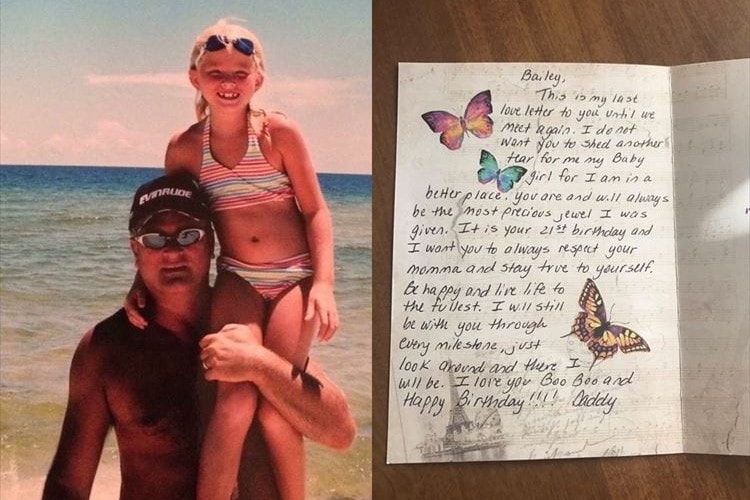 EVINRUDE
Bailey,
This is my last
love letter to you until we
meet again. I do not
want you to shed another
tear for me my Baby
girl for I am in a
better place. you are and will always
be the most precious jewel I was
given. It is your 21st birthday and
I want you to always respect your
momma and stay true to yourself.
Be happy and live life to
the fullest. I will still
be with you through
every milestone, just
look around and there I
will be. I love you Boo Boo and
Happy Birthday!!!! Daddy